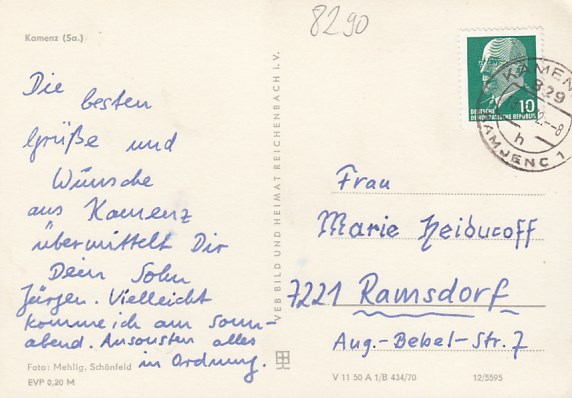 8290
Kamenz (Sa.)
Die
besten
Grüße und
Wünsche
aus Kamenz
übermittelt Dir
Dein Sohn
Jürgen. Vielleicht
komme ich am Sonn-
abend. Ansonsten alles
in Ordnung.
Foto: Mehlig, Schönfeld
EVP 0,20 M
VEB BILD UND HEIMAT REICHENBACH I. V.
10
DEUTSCHE
DEMOKRATISCHE REPUBLIK
KAMEN
829
-8
h
AMJENC 1
Frau
Marie Heiducoff
7221 Ramsdorf
Aug.-Bebel-Str. 7
V 11 50 A 1/B 434/70
12/5595